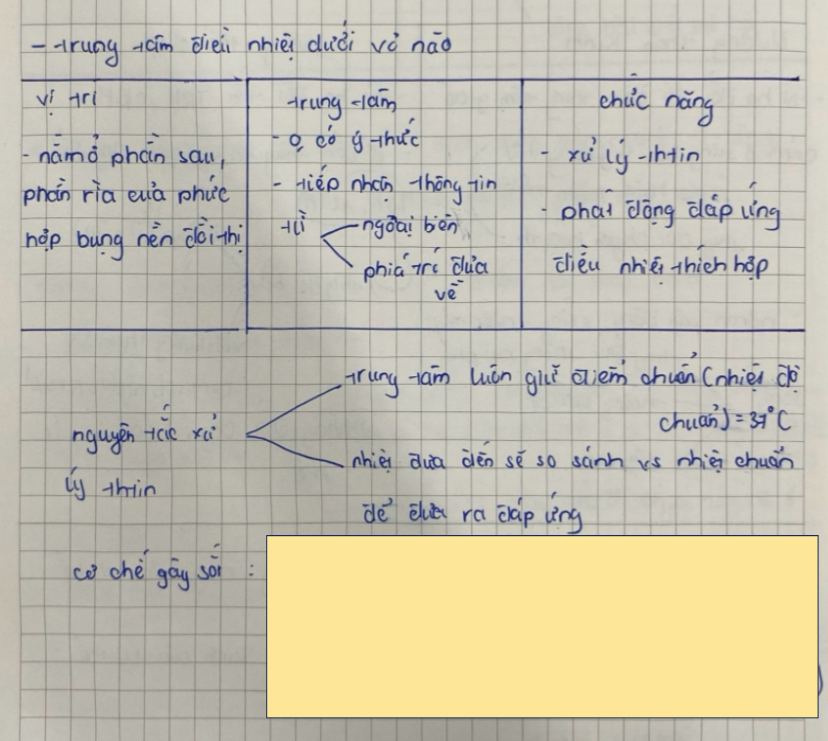 - trung tâm điều nhiệt dưới vỏ não
vị trí
- nằm ở phần sau,
phần rìa của phức
hợp bụng nền đồi thị
trung tâm
- 0 có ý thức
- tiếp nhận thông tin
từ ngoại biên
phía trí đưa
về
chức năng
- xử lý thtin
- phát động đáp ứng
điều nhiệt thích hợp
nguyên tắc xử
lý thtin
trung tâm luôn giữ điểm chuẩn (nhiệt độ
chuẩn) = 37°C
nhiệt đưa đến sẽ so sánh vs nhiệt chuẩn
để đưa ra đáp ứng
cơ chế gây sốt :